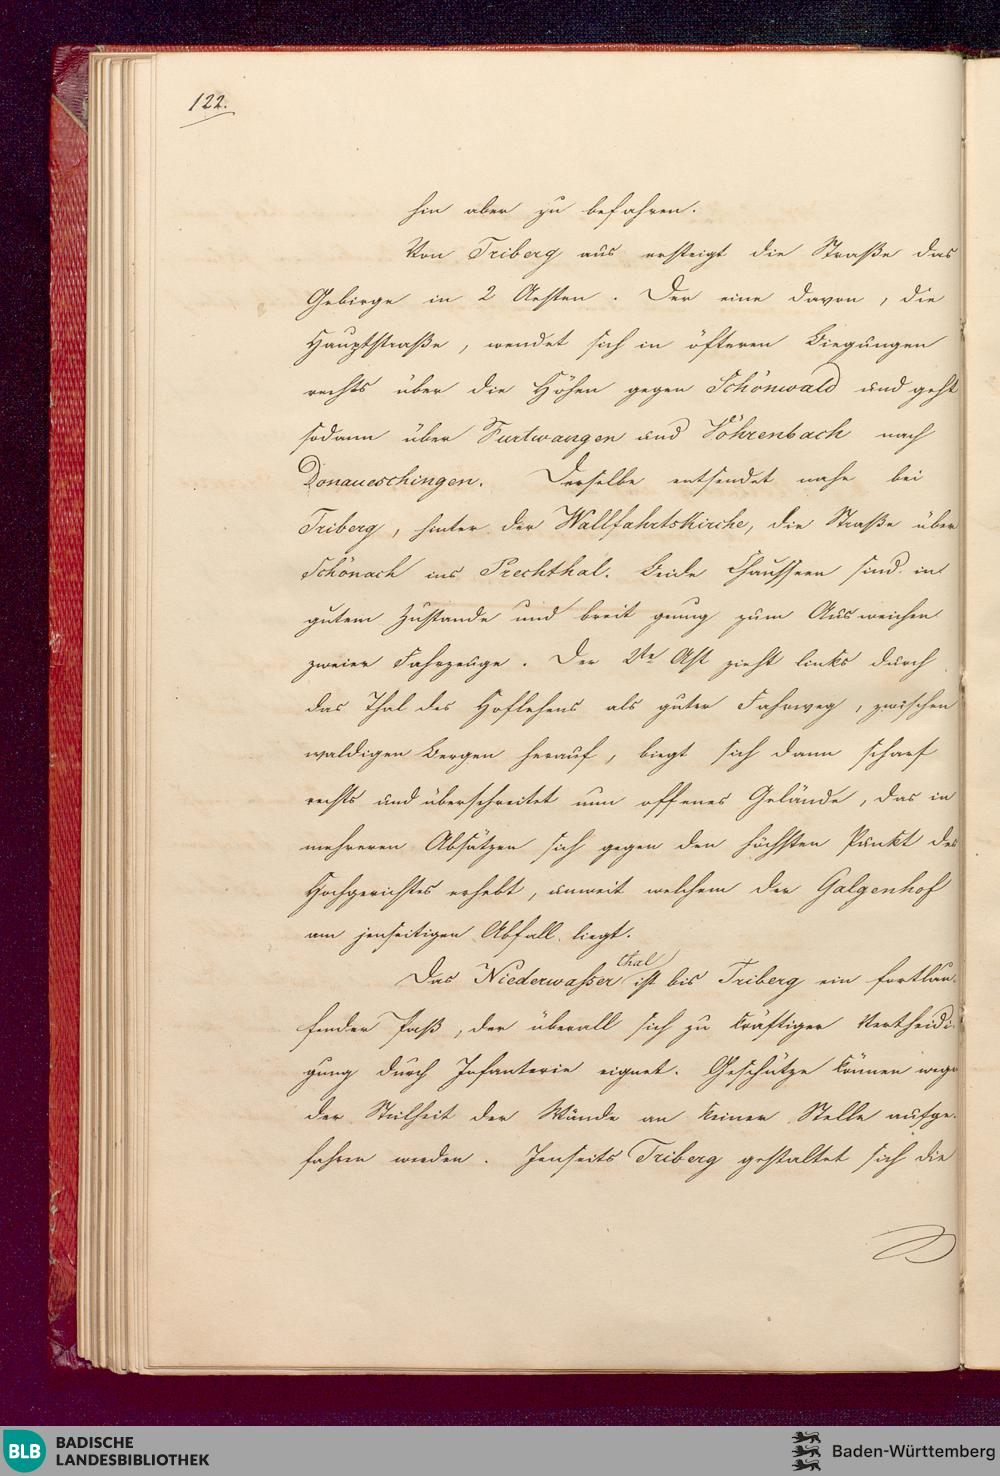 122.
hin aber zu befahren.
Von Triberg aus ersteigt die Straße das
Gebirge in 2 Aesten. Der eine davon, die
Hauptstraße, wendet sich in öfteren Biegungen
rechts über die Höhen gegen Schönwald und geht
sodann über Furtwangen und Vöhrenbach nach
Donaueschingen. Derselbe entsendet nahe bei
Triberg, hinter der Wallfahrtskirche, die Straße über
Schönach ins Prechthal. Beide Chausseen sind in
gutem Zustande und breit genug zum Ausweichen
zweier Fahrzeuge. Der 2te Ast zieht links durch
das Thal des Hoflehens als guter Fahrweg, zwischen
waldigen Bergen herauf, biegt sich dann scharf
rechts und überschreitet nun offenes Gelände, das in
mehreren Absätzen sich gegen den höchsten Punkt des
Hochgerichtes erhebt, unweit welchem der Galgenhof
am jenseitigen Abfall liegt.
Das Niederwasserthal ist bis Triberg ein fortlau-
fender Paß, der überall sich zu kräftiger Vertheidi-
gung durch Infanterie eignet. Geschütze können wegen
der Steilheit der Wände an keiner Stelle aufge-
fahren werden. Jenseits Triberg gestaltet sich die
BLB BADISCHE
LANDESBIBLIOTHEK
Baden-Württemberg